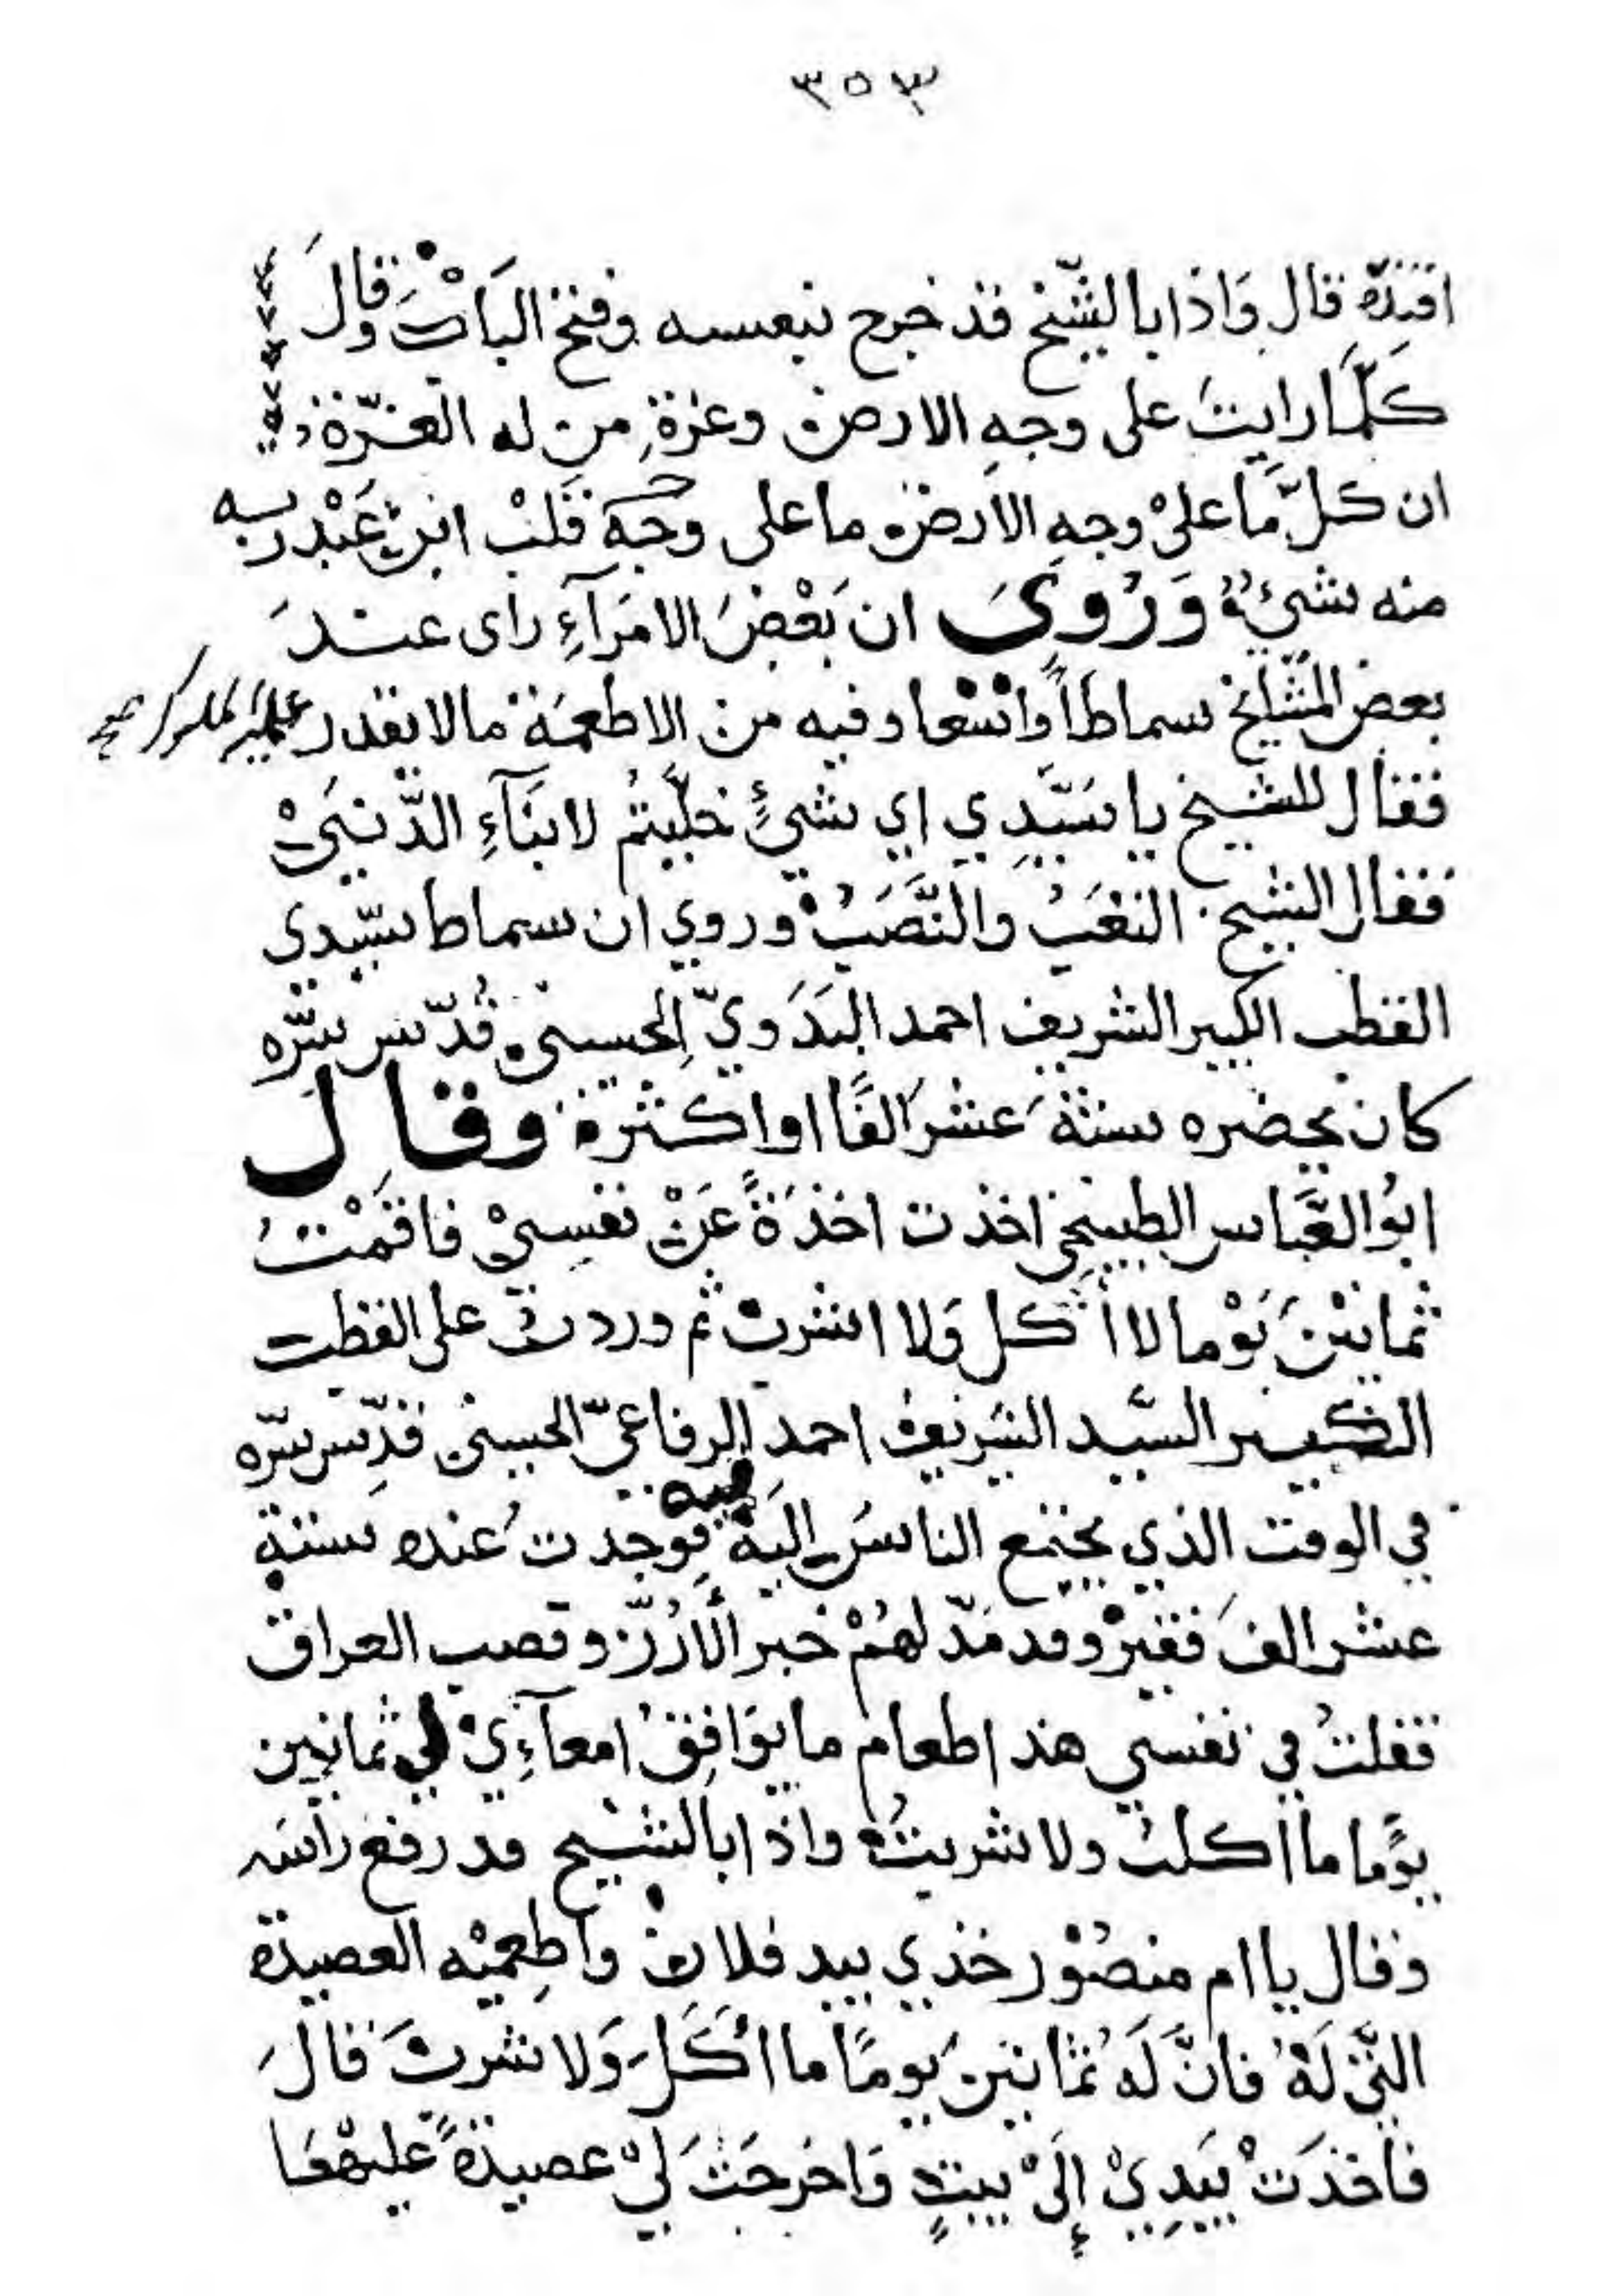 ٣٥٣
افتدّة قال وَاذا بالشّيخ قد خرج بنفسه وفتح البَابْ وقالَ
كلّما رايتَ على وجهِ الارض وعزةِ من له العزّة
ان كلّ مَا علىْ وجهِ الارض ما على وجهَ قلبْ ابنِ عَبْدربه
منه شيءٌ وَرُويَ ان بَعْضَ الامَرآءِ راى عندَ
بعض المشّايخ سماطاً وَاسْعا وفيه من الاطعمَة مالا يقدر عليه الملوك صح
فقال للشيخ يا سَيّدِي اي شيءٍ خلّيتمُ لابنَآءِ الدّنيَىْ
فقال الشيخ التعَبُ والنَّصَبُ وروي ان سماط سيّدي
القطب الكبير الشريف احمد البَدَويّ الحسيني قُدّس سّره
كان يحضره ستّة عَشرَ الفًا او اكثرة وقال
ابوُ العبَّاس الطبيخي اخذت اخذَةً عَنْ نفسِيْ فاقمْتُ
ثمانيْنَ يَوْما لا أكل وَلا اشربْ ثم وردت على القطب
الكبير السَّيد الشَريف احمد الرفاعيّ الحسيني قدِّس سّره
في الوقت الذي يجتمع الناسُ اليَهْ فيه فوجدتُ عنده ستة
عشر الفَ فقيرْ وقد مَدّ لهُمْ خبز الأرُزّ وقصب العراق
فقلتُ في نفسي هذا طعام ما يوَافِقُ امعآءِيْ لي ثمانين
يوًما ما اكلتُ ولا شربتُ واذا بالشّيخ قد رفع راسَه
وقال يا ام منصُوْر خذي بيد فلان واطعِميْه العصيدة
التّي لَهُ فانَّ لَهُ ثمانينَ يومًا ما اكَلَ وَلا شربَ قالَ
فاخذَتْ بيَدِيْ إلىْ بيتٍ وَاخرجَتْ لَيْ عصيدَةً عَليْهَا